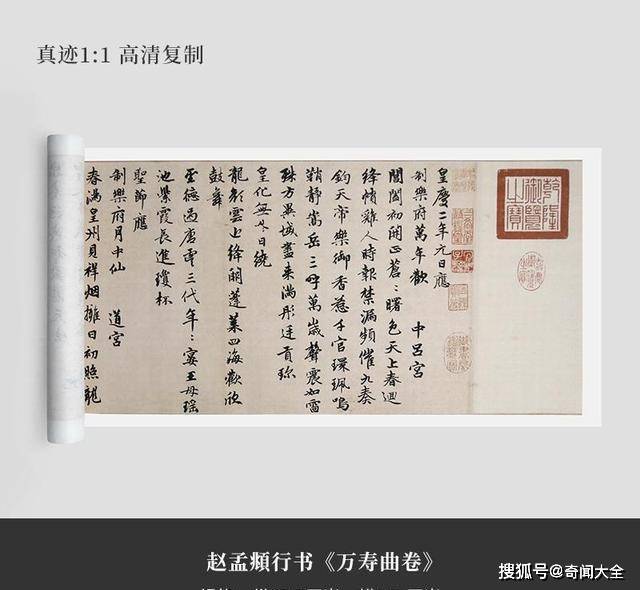 真迹1:1 高清复制
乾隆御覽之寶
皇慶二年元日應
制樂府萬年歡 中呂宮
閶闔初開正蒼〻曙色天上春迴
絳幘雞人時報禁漏頻催九奏
鈞天帝樂御香惹千官環珮鳴
鞘靜嵩岳三呼萬歲聲震如雷
殊方異域盡来滿彤廷貢珎
皇化無日繞
龍顔雲上絳闕蓬萊四海歡欣
鼓舞
至德過唐虞三代年〻宴王母瑶
池紫霞長進瓊杯
聖節應
制樂府月中仙 道宮
春滿皇州見祥烟擁日初照龍
赵孟頫行书《万寿曲卷》
搜狐号@奇闻大全